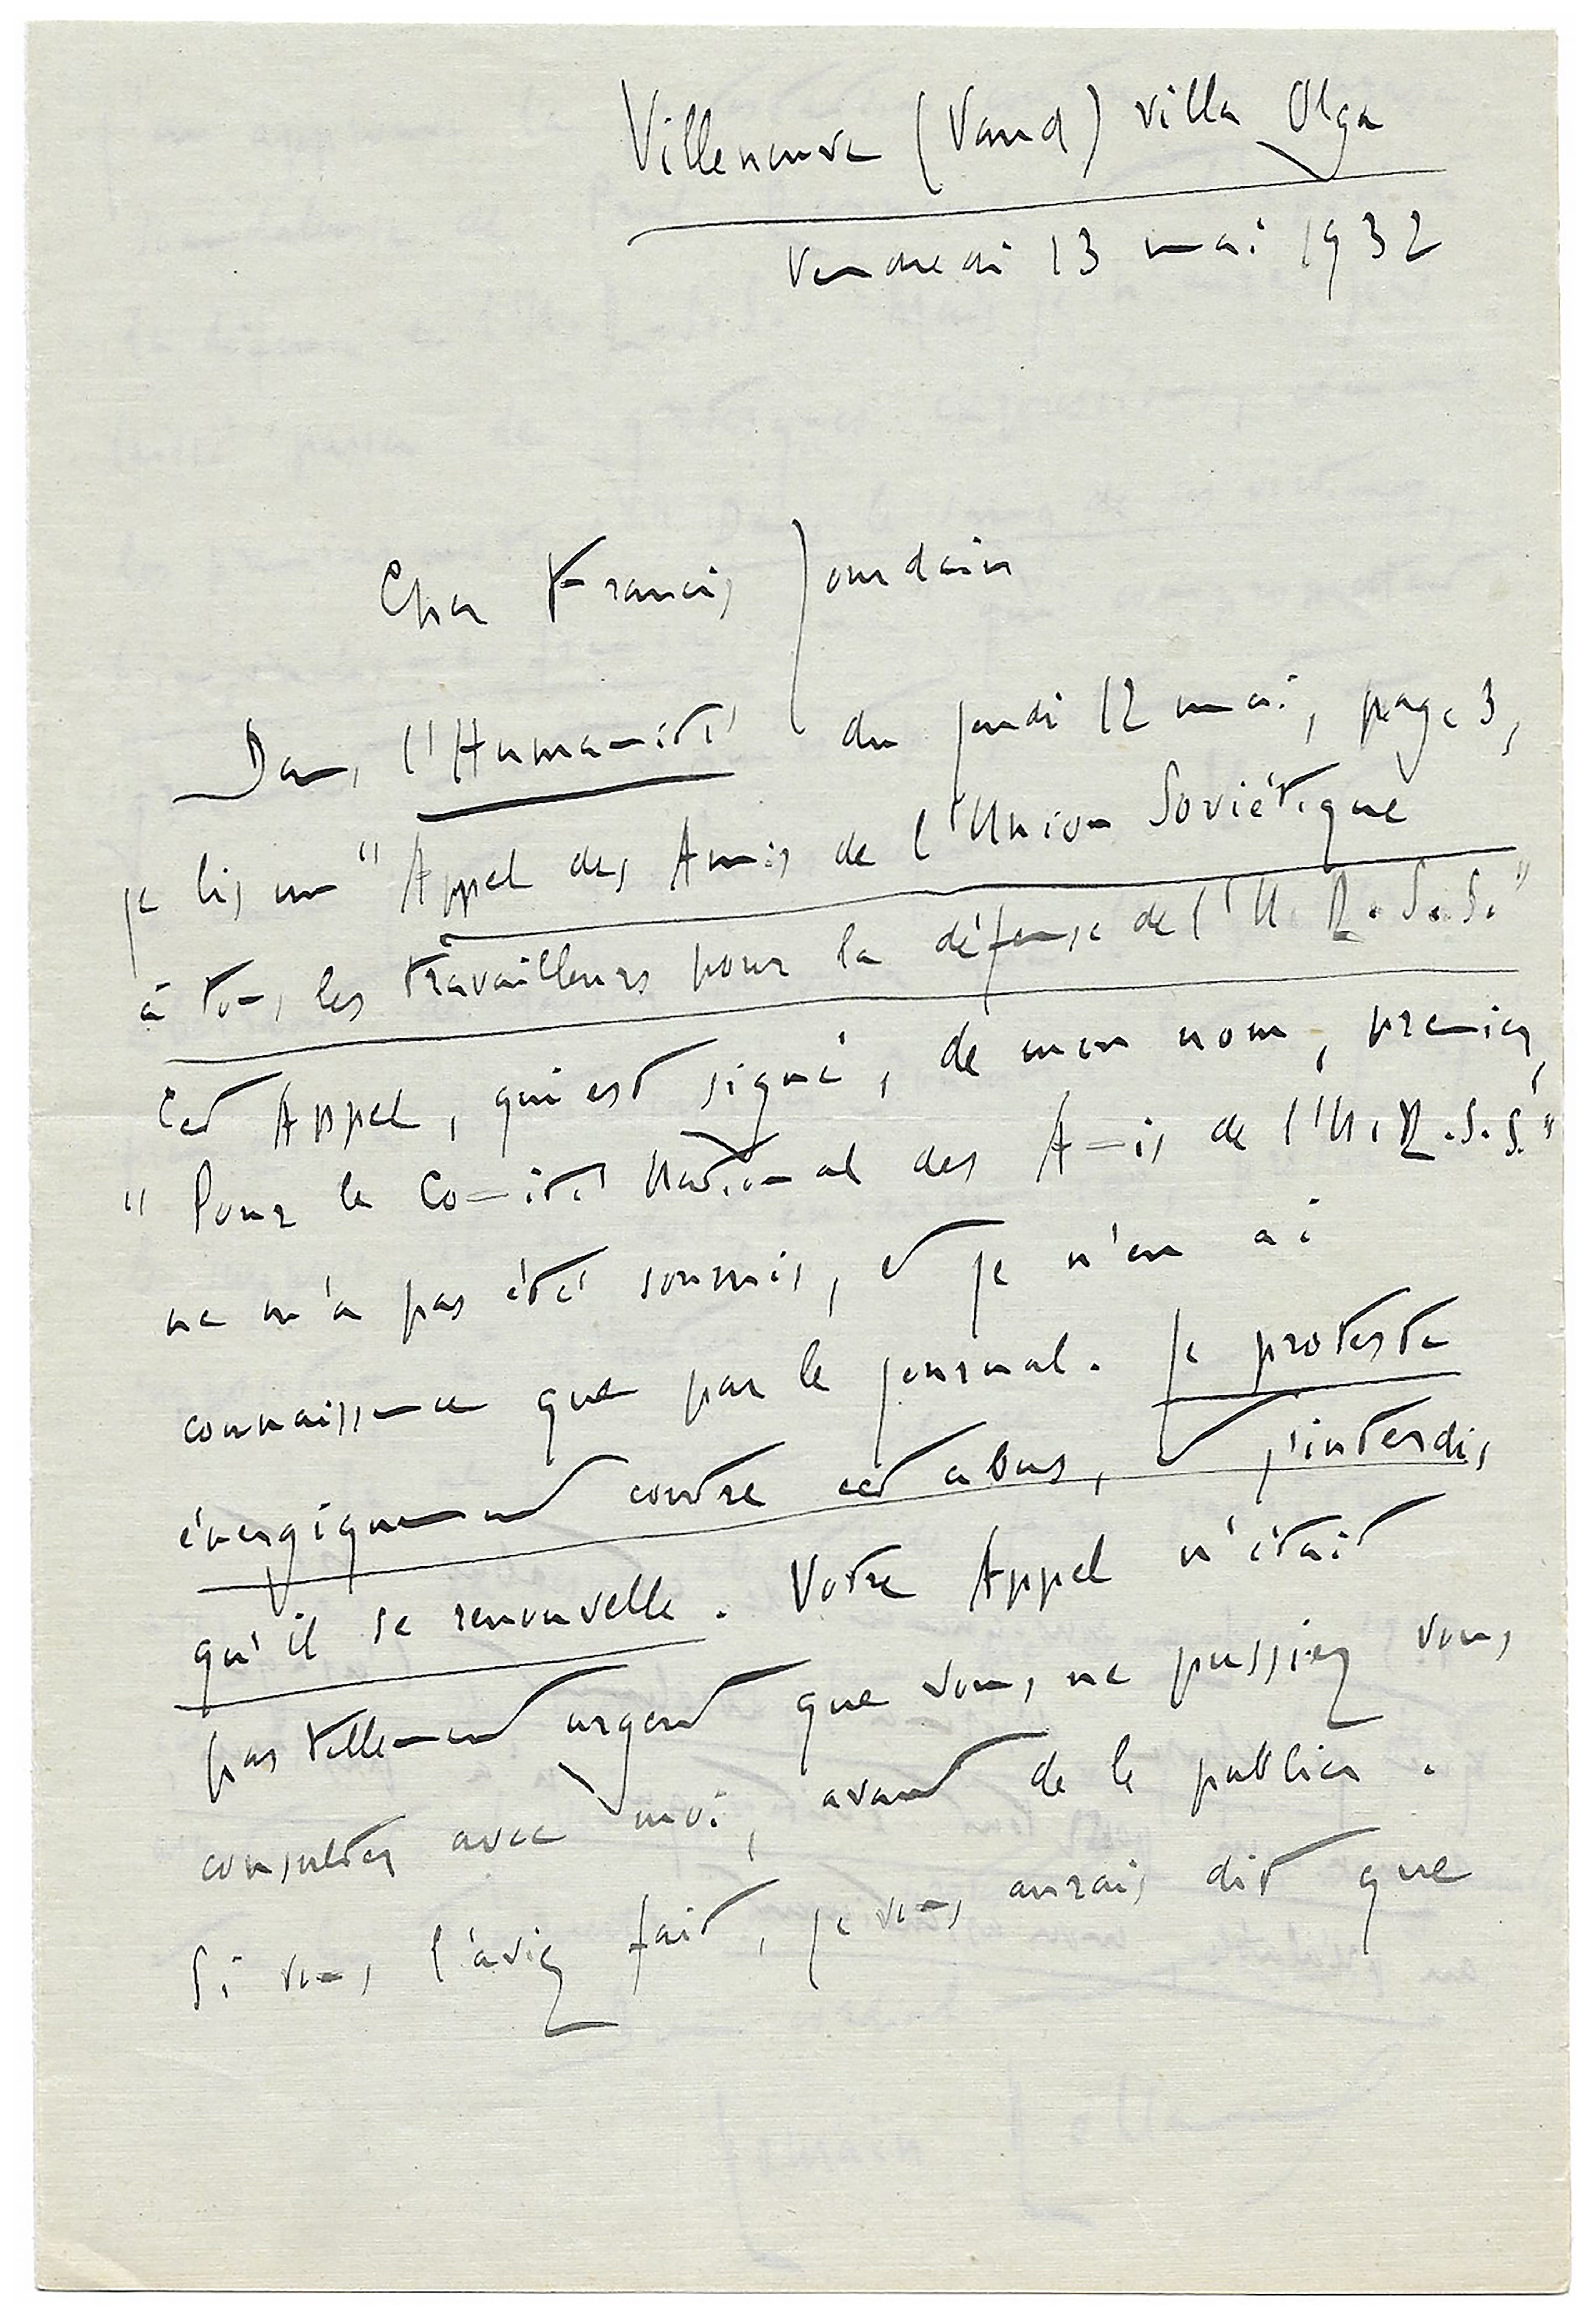 Villeneuve (Vaud) villa Olga
Vendredi 13 mai 1932
Cher Francis Jourdain
Dans l'Humanité du jeudi 12 mai, page 3,
je lis un "Appel des Amis de l'Union Soviétique
à tous les travailleurs pour la défense de l'U.R.S.S."
Cet Appel, qui est signé, de mon nom, premier,
"Pour le Comité National des Amis de l'U.R.S.S."
ne m'a pas été soumis, et je n'en ai
connaissance que par le journal. Je proteste
énergiquement contre cet abus, et j'interdis
qu'il se renouvelle. Votre Appel n'était
pas tellement urgent que vous ne pussiez vous
consulter avec moi, avant de le publier.
Si vous l'aviez fait, je vous aurais dit que